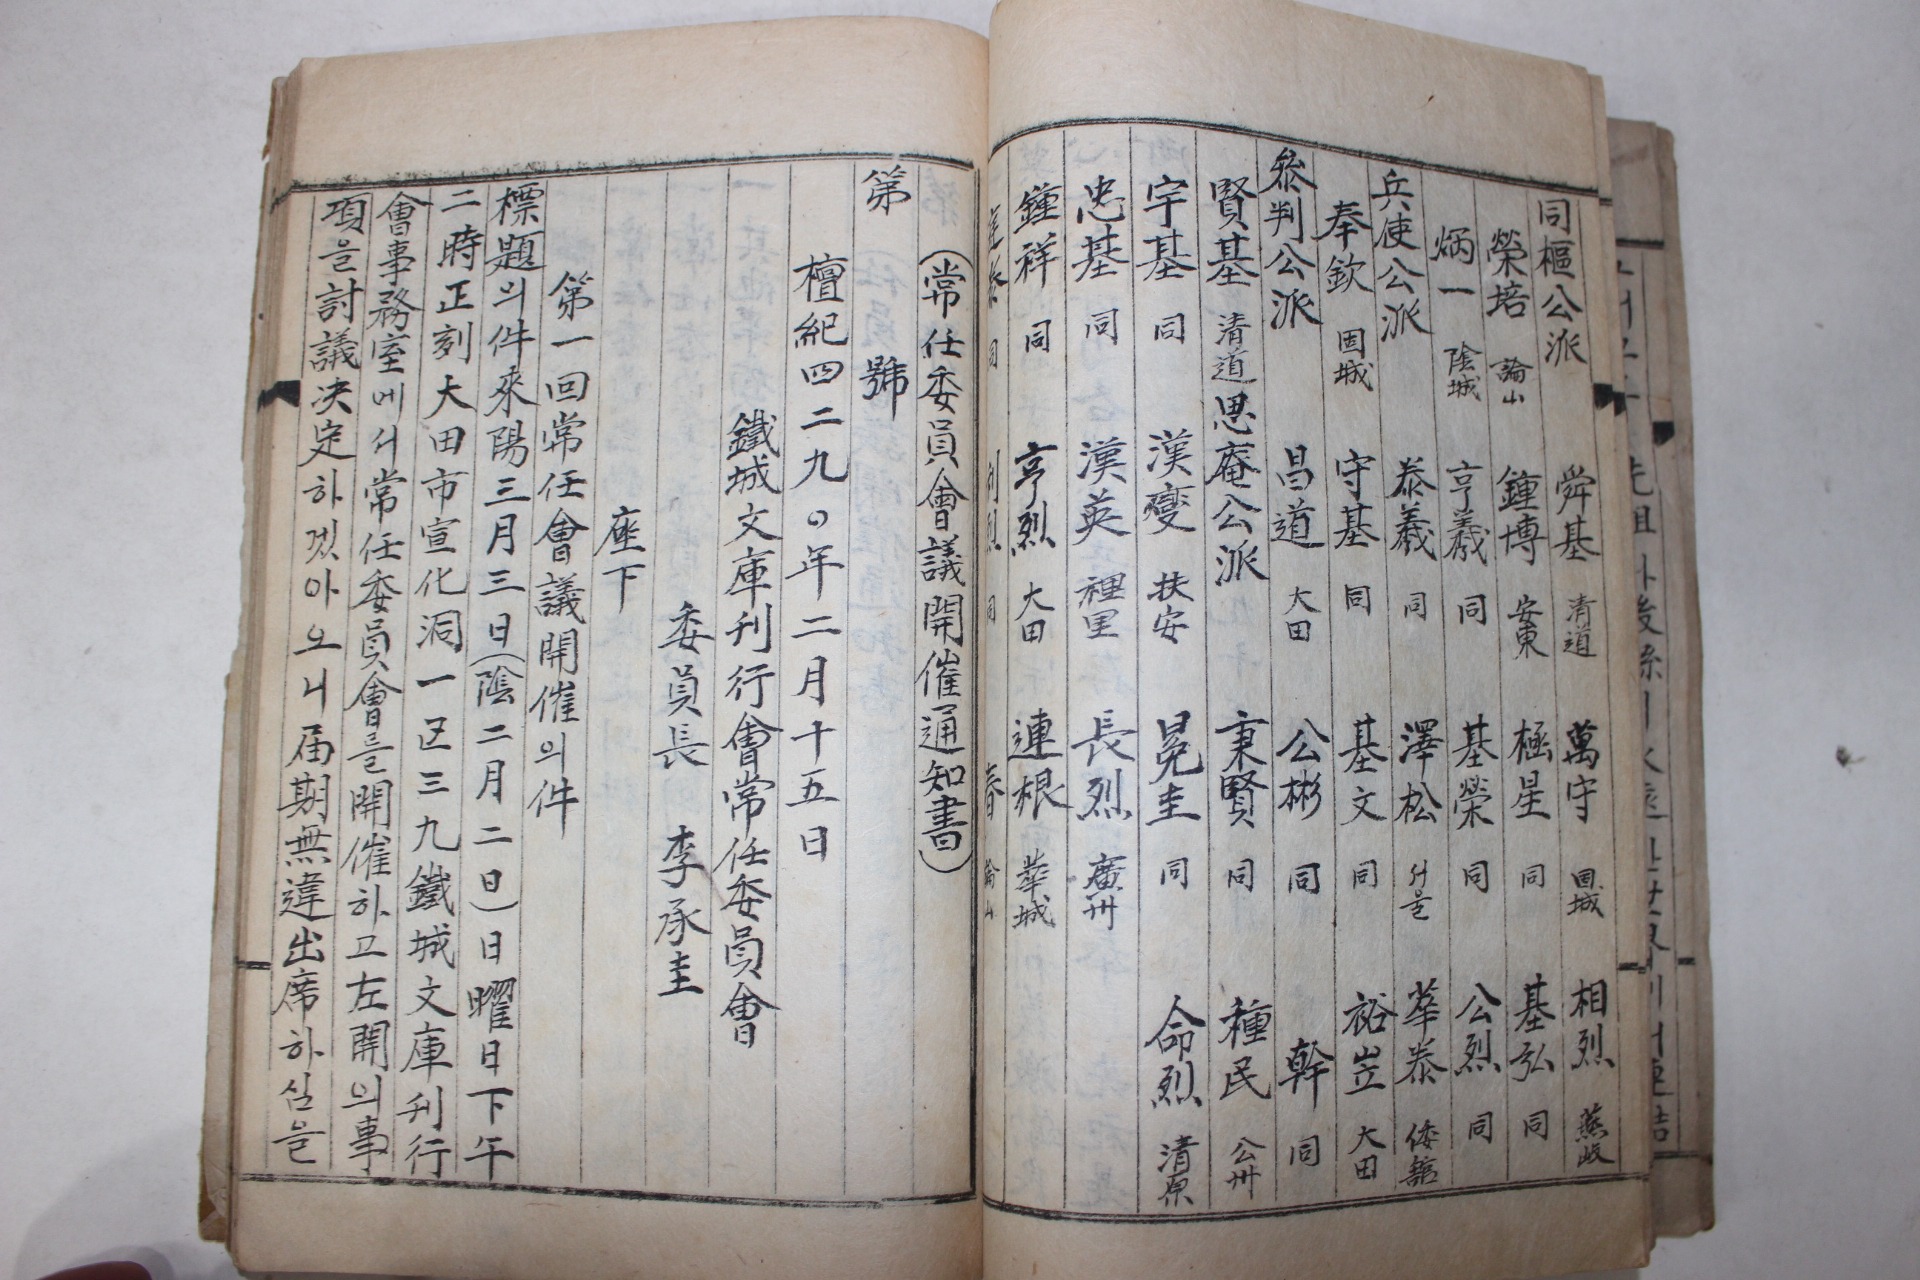 同樞公派 舜基 清道 萬守 固城 相烈 燕岐
榮培 論山 鍾博 安東 極星 同 基弘 同
炳一 陰城 亨羲 同 基榮 同 公烈 同
兵使公派 泰羲 同 澤松 서울 華泰 倭舘
奉欽 固城 守基 同 基文 同 裕岦 大田
參判公派 昌道 大田 公彬 同 幹 同
賢基 清道 思庵公派 秉賢 同 種民 公州
宇基 同 漢燮 扶安 冕圭 同 命烈 清原
忠基 同 漢英 裡里 長烈 廣州
鍾祥 同 亨烈 大田 連根 華城
(常任委員會議開催通知書)
第 號
檀紀四二九〇年二月十五日
鐵城文庫刊行會常任委員會
委員長 李承圭
座下
第一回常任會議開催의件
標題의件來陽三月三日(陰二月二日)日曜日下午
二時正刻大田市宣化洞一区三九鐵城文庫刊行
會事務室에서常任委員會를開催하고左開의事
項을討議决定하겠아오니届期無違出席하심을